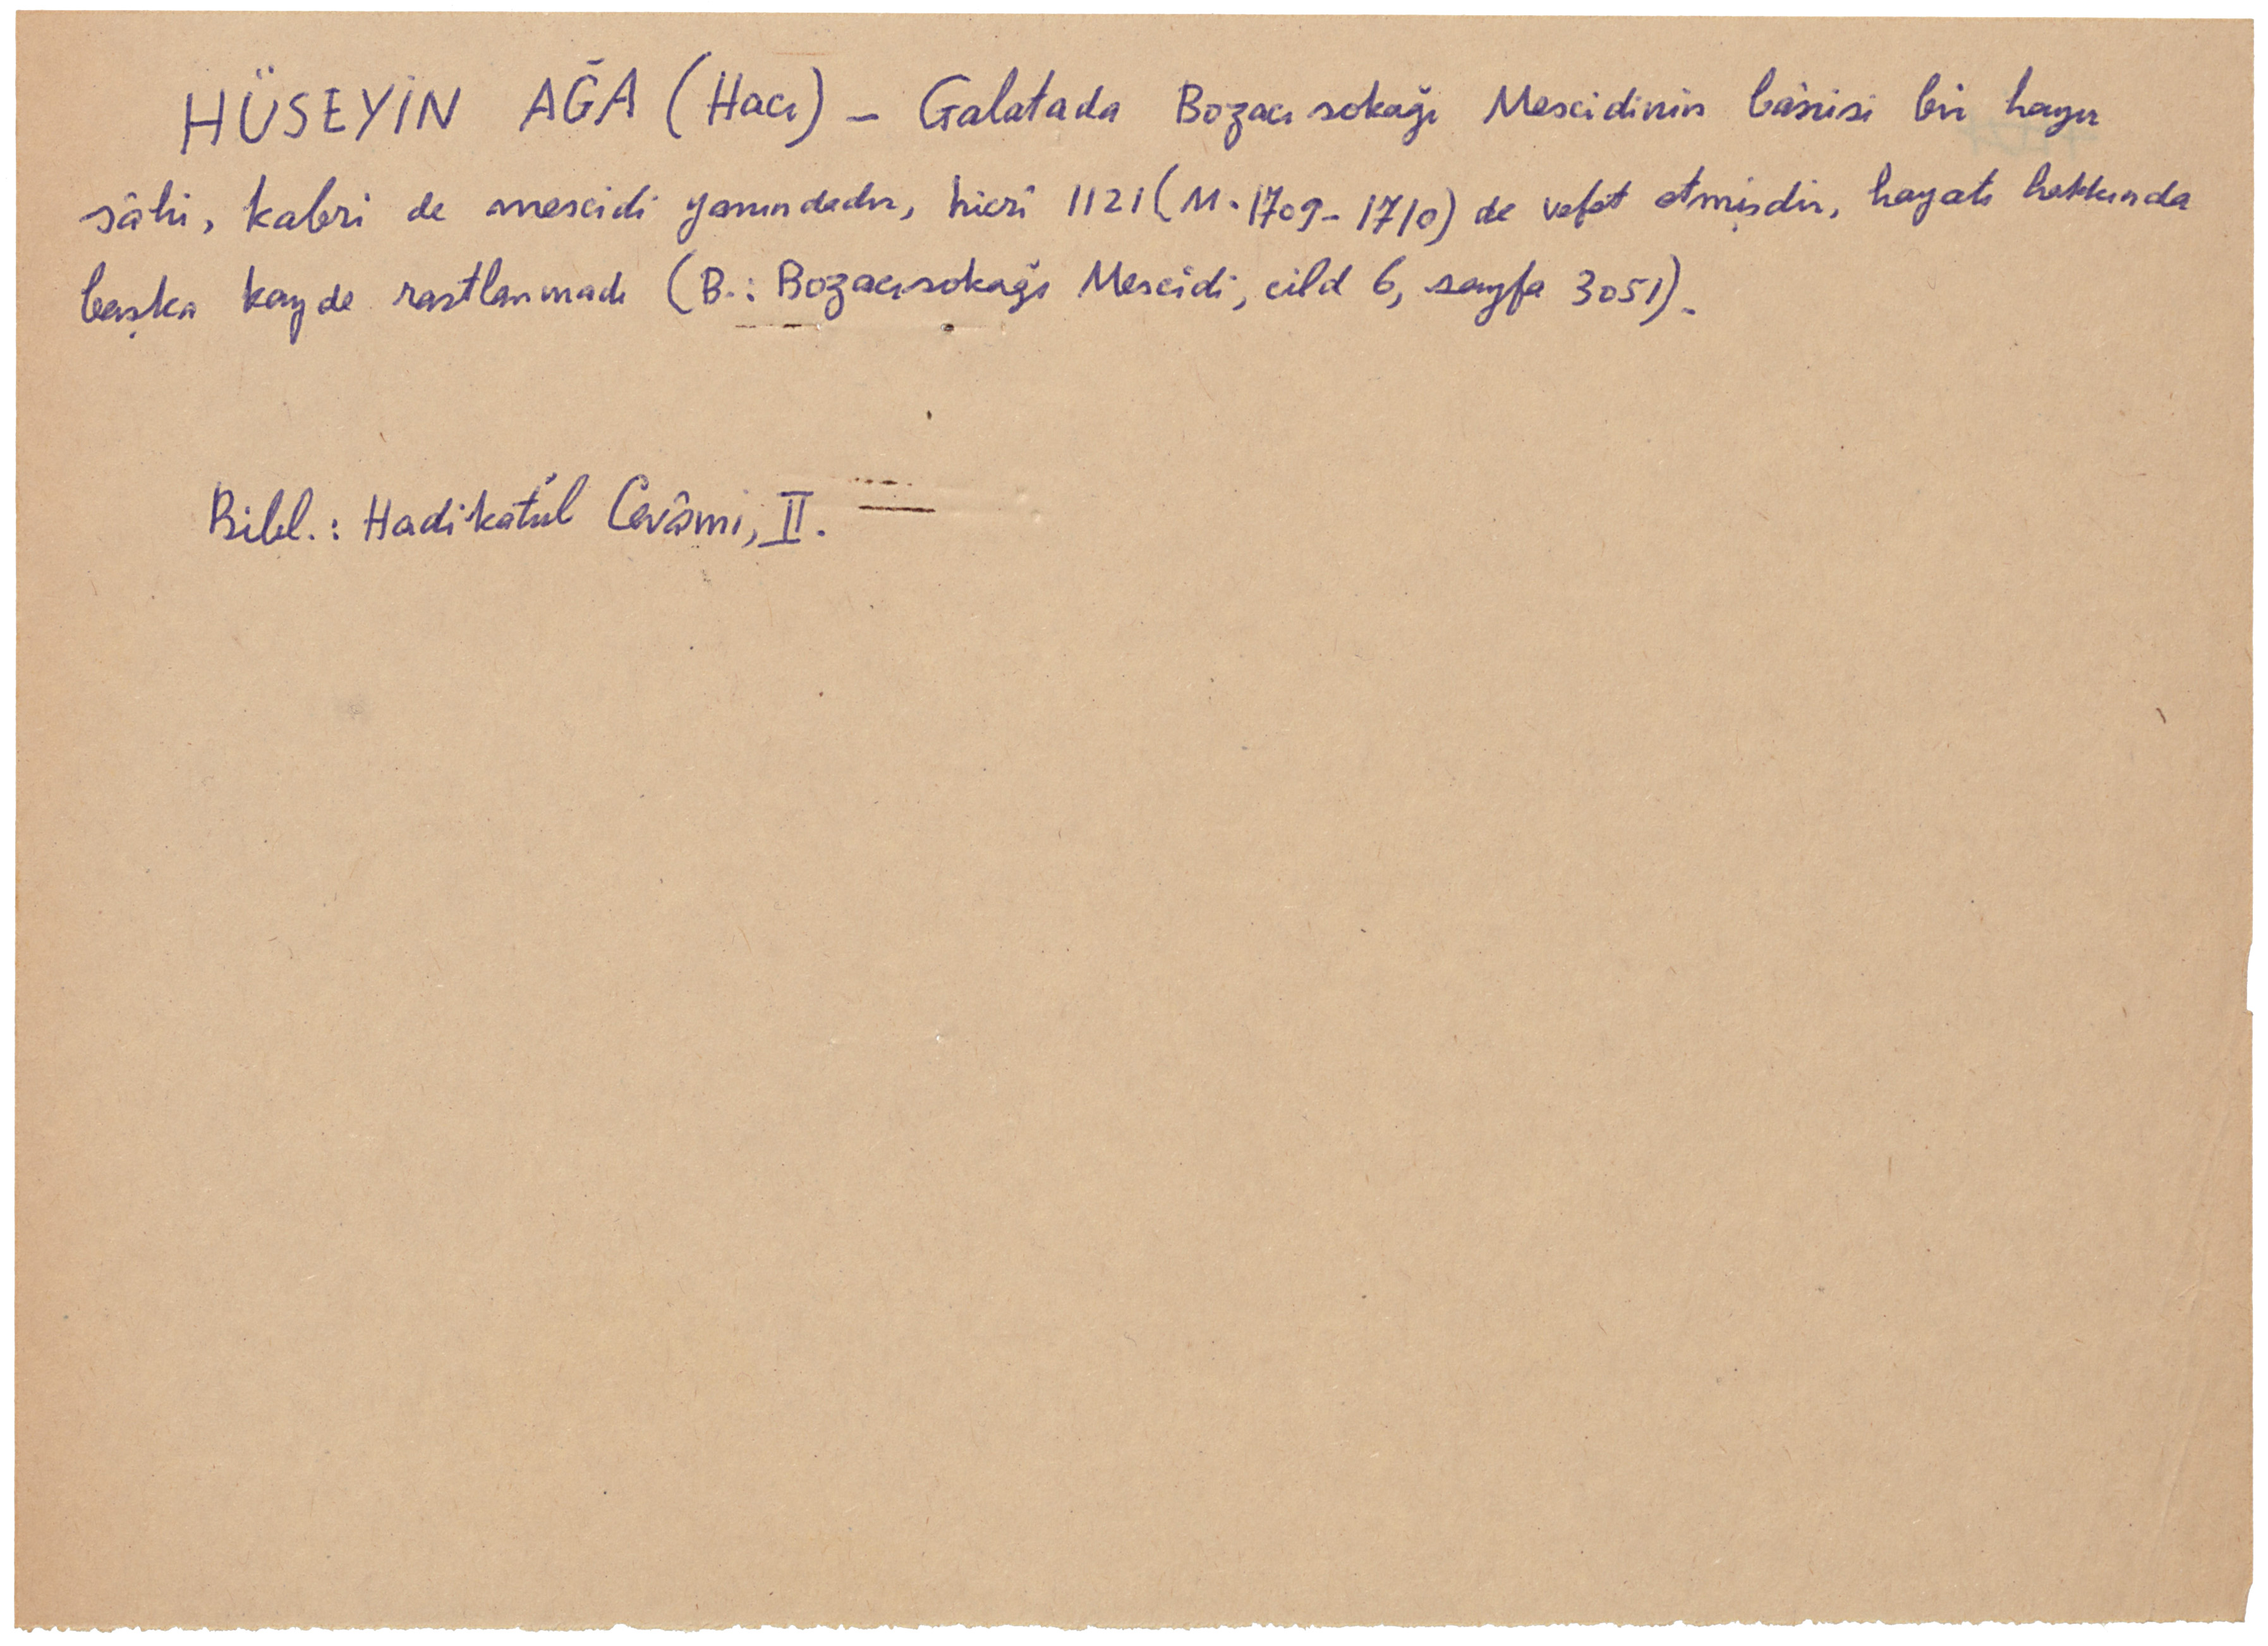 HÜSEYİN AĞA (Hacı) – Galatada Bozacı sokağı Mescidinin bânisi bir hayır
sâhi, kabri de mescidi yanındadır, hicrî 1121 (M. 1709-1710) de vefat etmişdir, hayatı hakkında
başka kayde rastlanmadı (B.: Bozacısokağı Mescidi, cild 6, sayfa 3051).
Bibl.: Hadikatül Cevâmi, II.